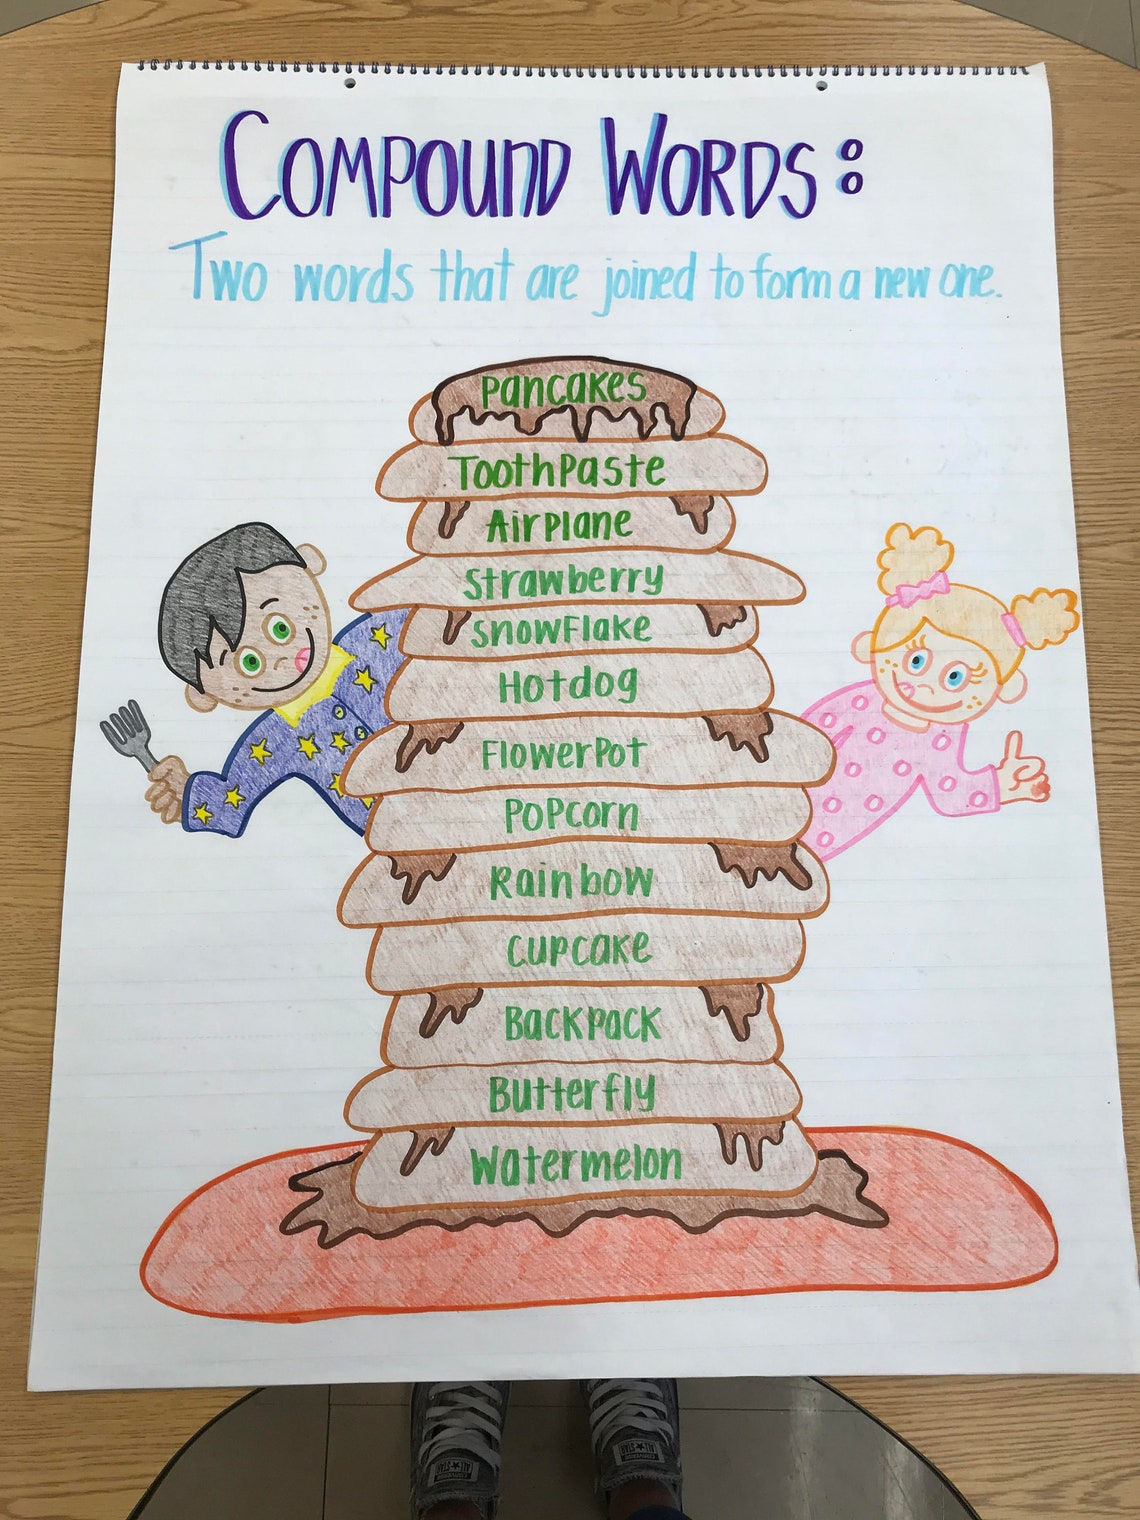 COMPOUND WORDS:
Two words that are joined to form a new one.
PANCAKES
TOOTHPASTE
AIRPLANE
STRAWBERRY
SNOWFLAKE
HOTDOG
FLOWERPOT
POPCORN
RAINBOW
CUPCAKE
BACKPACK
BUTTERFLY
WATERMELON
CONVERSE
ALL★STAR
CONVERSE
ALL★STAR